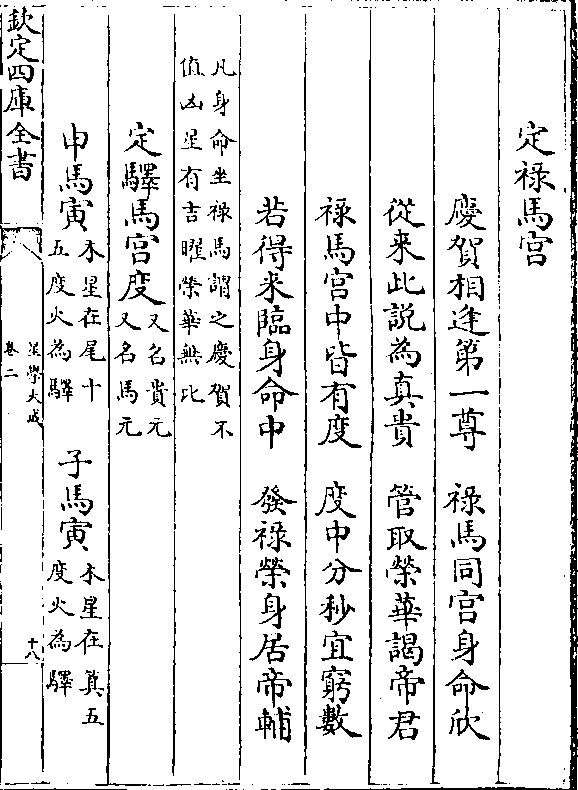 定祿馬宫
慶賀相逢第一尊　祿馬同宫身命欣
從来此説為真貴　管取榮華謁帝君
祿馬宫中皆有度　度中分秒宜窮數
若得来臨身命中　發祿榮身居帝輔
凡身命坐祿馬謂之慶賀不
值凶星有吉曜榮華無比
定驛馬宫度又名貴元
又名馬元
申馬寅木星在尾十
五度火為驛
子馬寅木星在箕五
度火為驛
欽定四庫全書
星學大成
卷二
十八